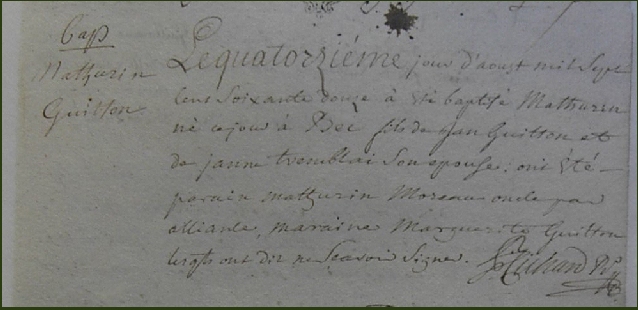 Bap
Mathurin
Guitton
Le quatorziéme jour d'aoust mil sept
cent soixante douze à été baptisé Mathurin
né ce jour à fils de jean Guitton et
de janne tremblai son epouse; ont été
parain mathurin Moreau oncle par
alliance, maraine Marguerite Guitton
lesqls ont dit ne scavoir signer.